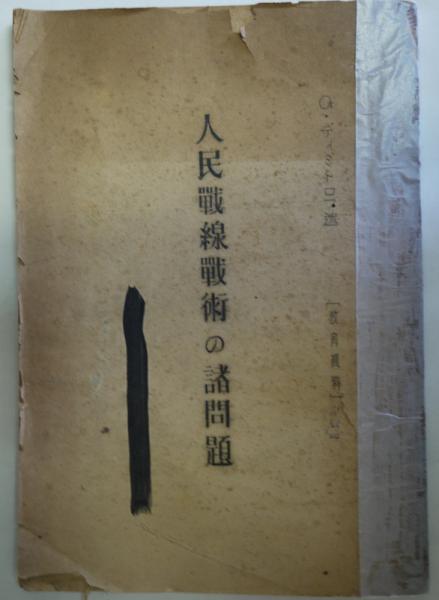 G・ディミトロフ・著
[教育資料]
人民戰線戰術の諸問題